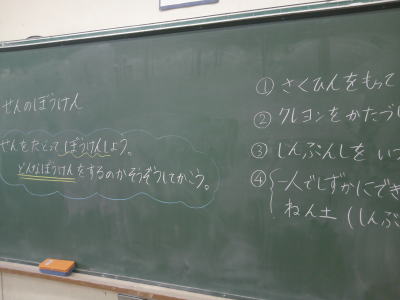 せんのぼうけん
せんをたどってぼうけんしよう。
どんなぼうけんをするのかそうぞうしてかこう。
① さくひんをもって
② クレヨンをかたづ
③ しんぶんしを いつ
④ 一人でしずかにでき
ねん土 (しんぶ